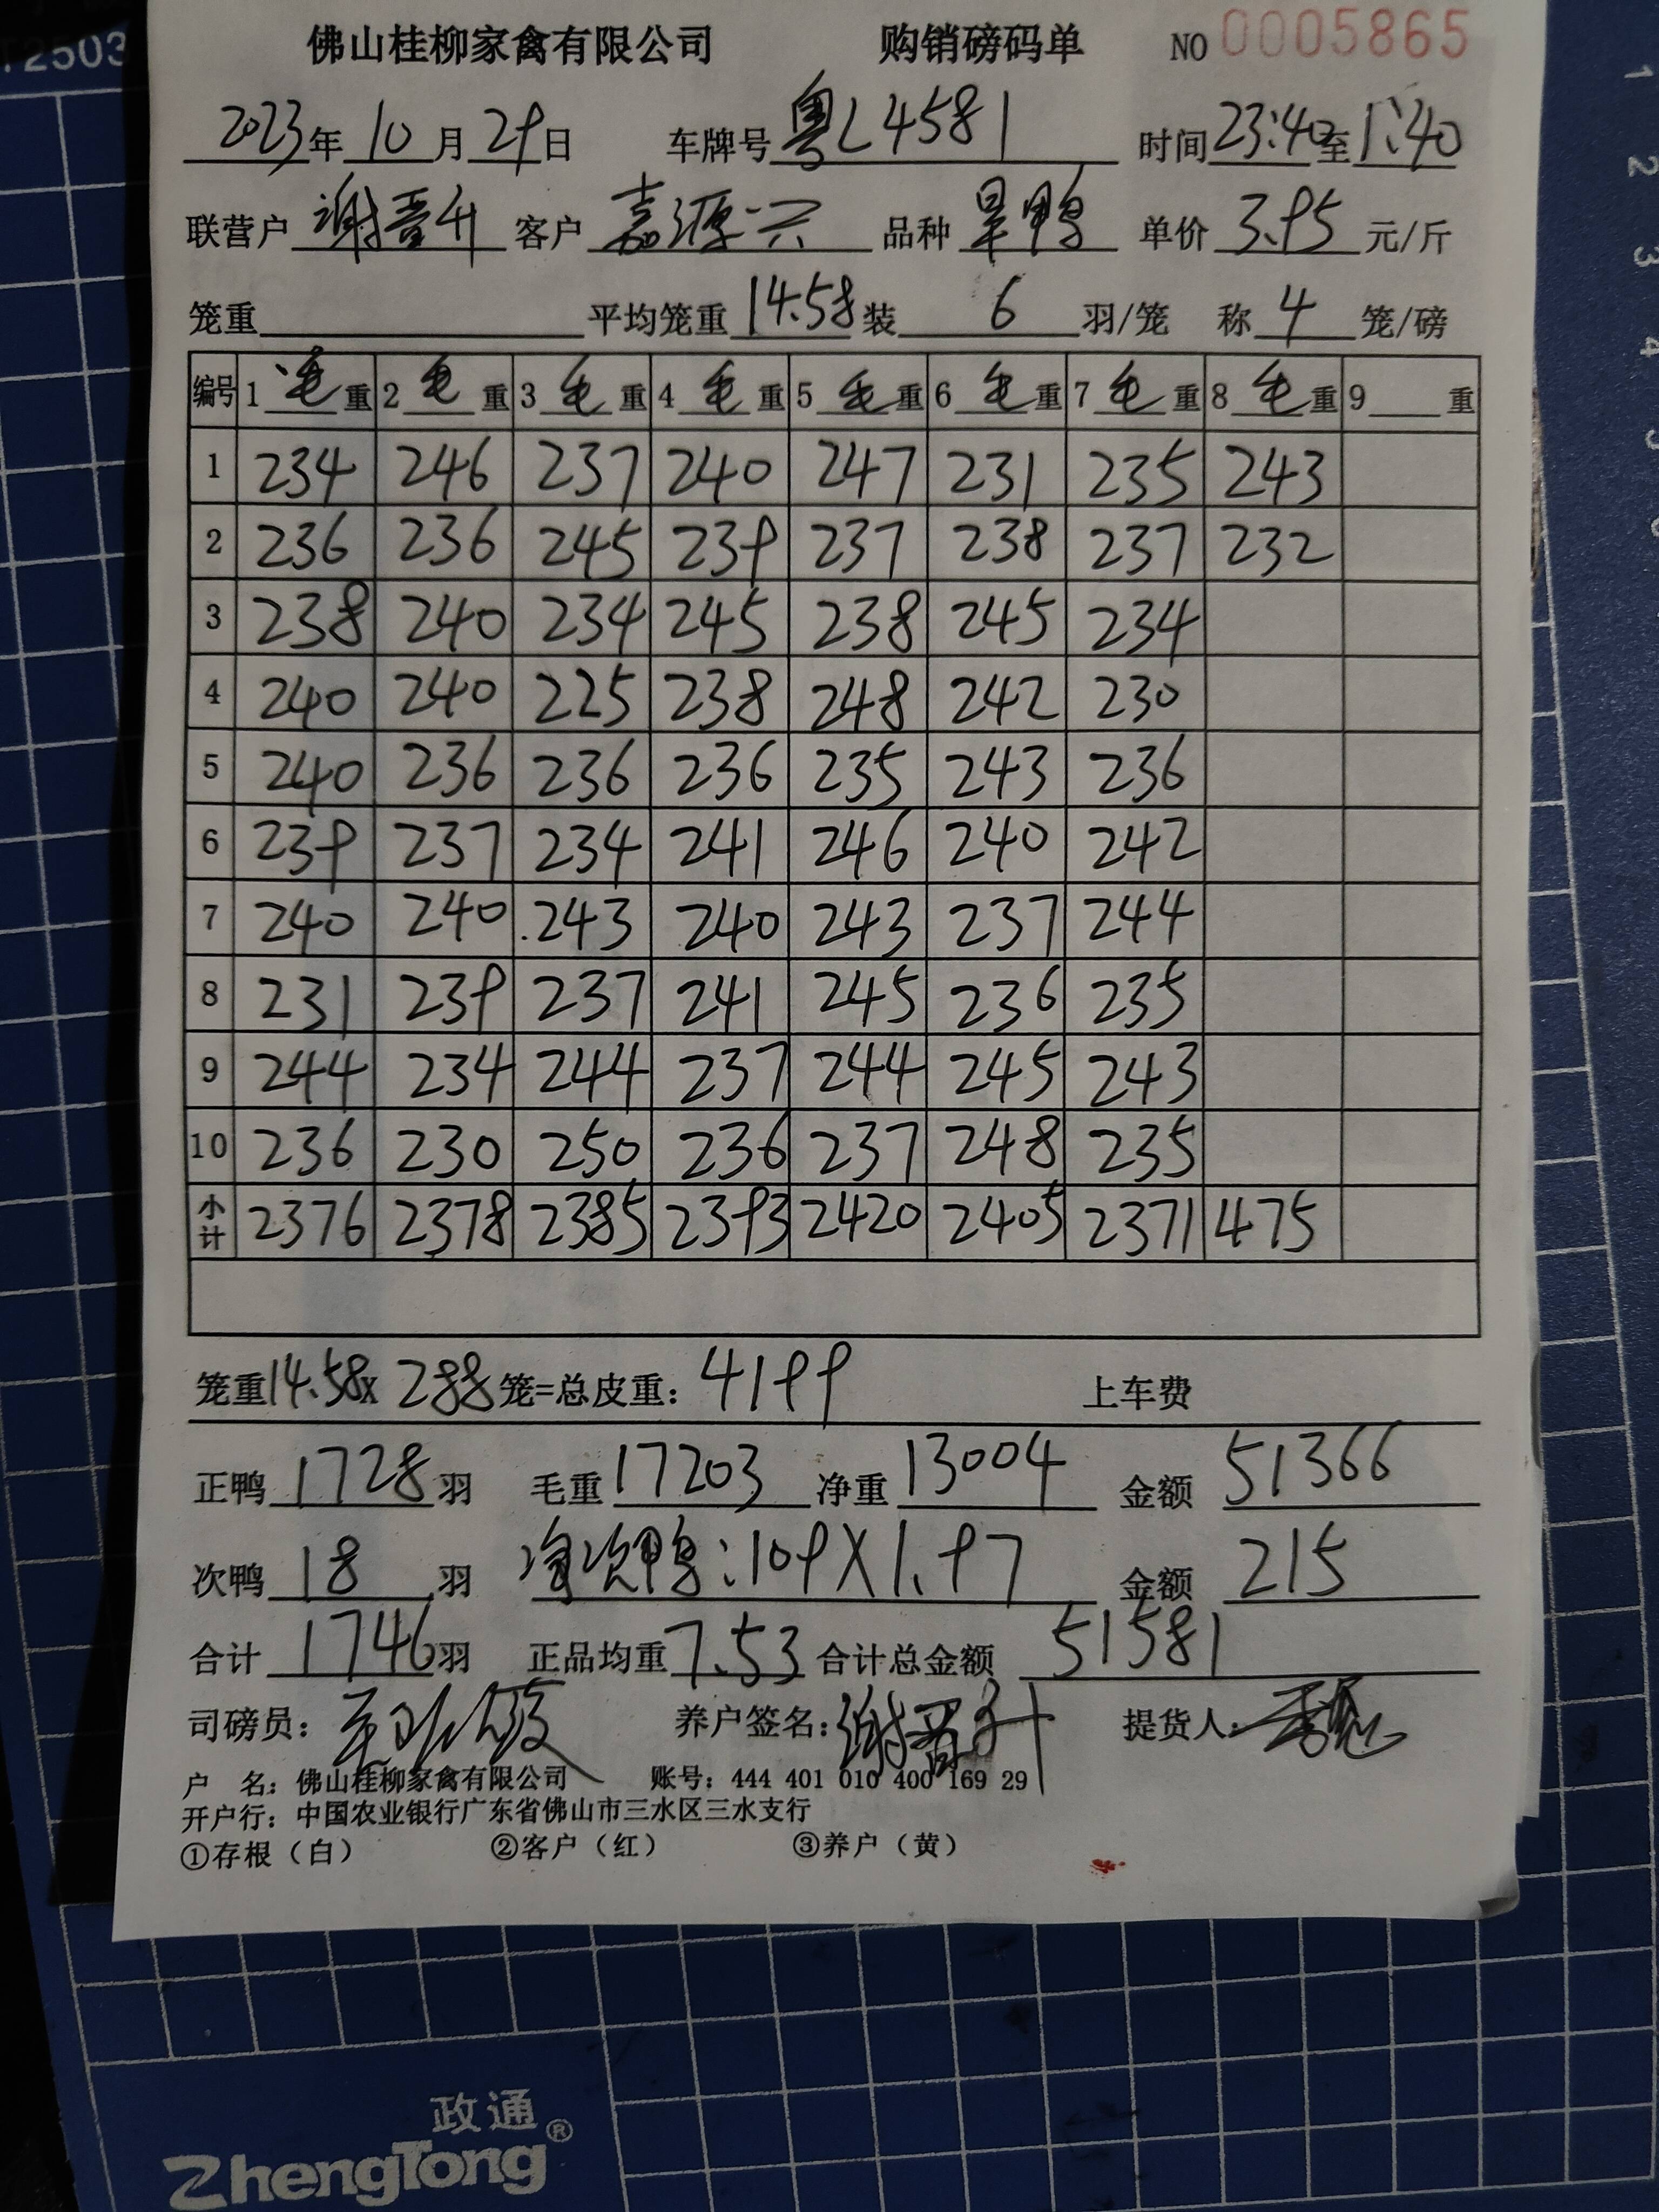 T2503
佛山桂柳家禽有限公司 购销磅码单 NO 0005865
2023年10月29日 车牌号 粤L4581 时间 23:40至1:40
联营户 谢晋升 客户 嘉源兴 品种 旱鸭 单价 3.95 元/斤
笼重 平均笼重 14.58 装 6 羽/笼 称 4 笼/磅
编号 1 毛重 2 毛重 3 毛重 4 毛重 5 毛重 6 毛重 7 毛重 8 毛重 9 重
1 234 246 237 240 247 231 235 243
2 236 236 245 239 237 238 237 232
3 238 240 234 245 238 245 234
4 240 240 225 238 248 242 230
5 240 236 236 236 235 243 236
6 239 237 234 241 246 240 242
7 240 240 243 240 243 237 244
8 231 239 237 241 245 236 235
9 244 234 244 237 244 245 243
10 236 230 250 236 237 248 235
小计 2376 2378 2385 2393 2420 2405 2371 475
笼重14.58x 288笼=总皮重: 4199 上车费
正鸭 1728 羽 毛重 17203 净重 13004 金额 51366
次鸭 18 羽 次鸭:109X1.97 金额 215
合计 1746羽 正品均重 7.53 合计总金额 51581
司磅员: 养户签名: 谢晋升 提货人:
户 名: 佛山桂柳家禽有限公司 账号: 444 401 010 400 169 29
开户行: 中国农业银行广东省佛山市三水区三水支行
①存根(白) ②客户(红) ③养户(黄)
政通®
ZhengTong
1
2
3
4
5